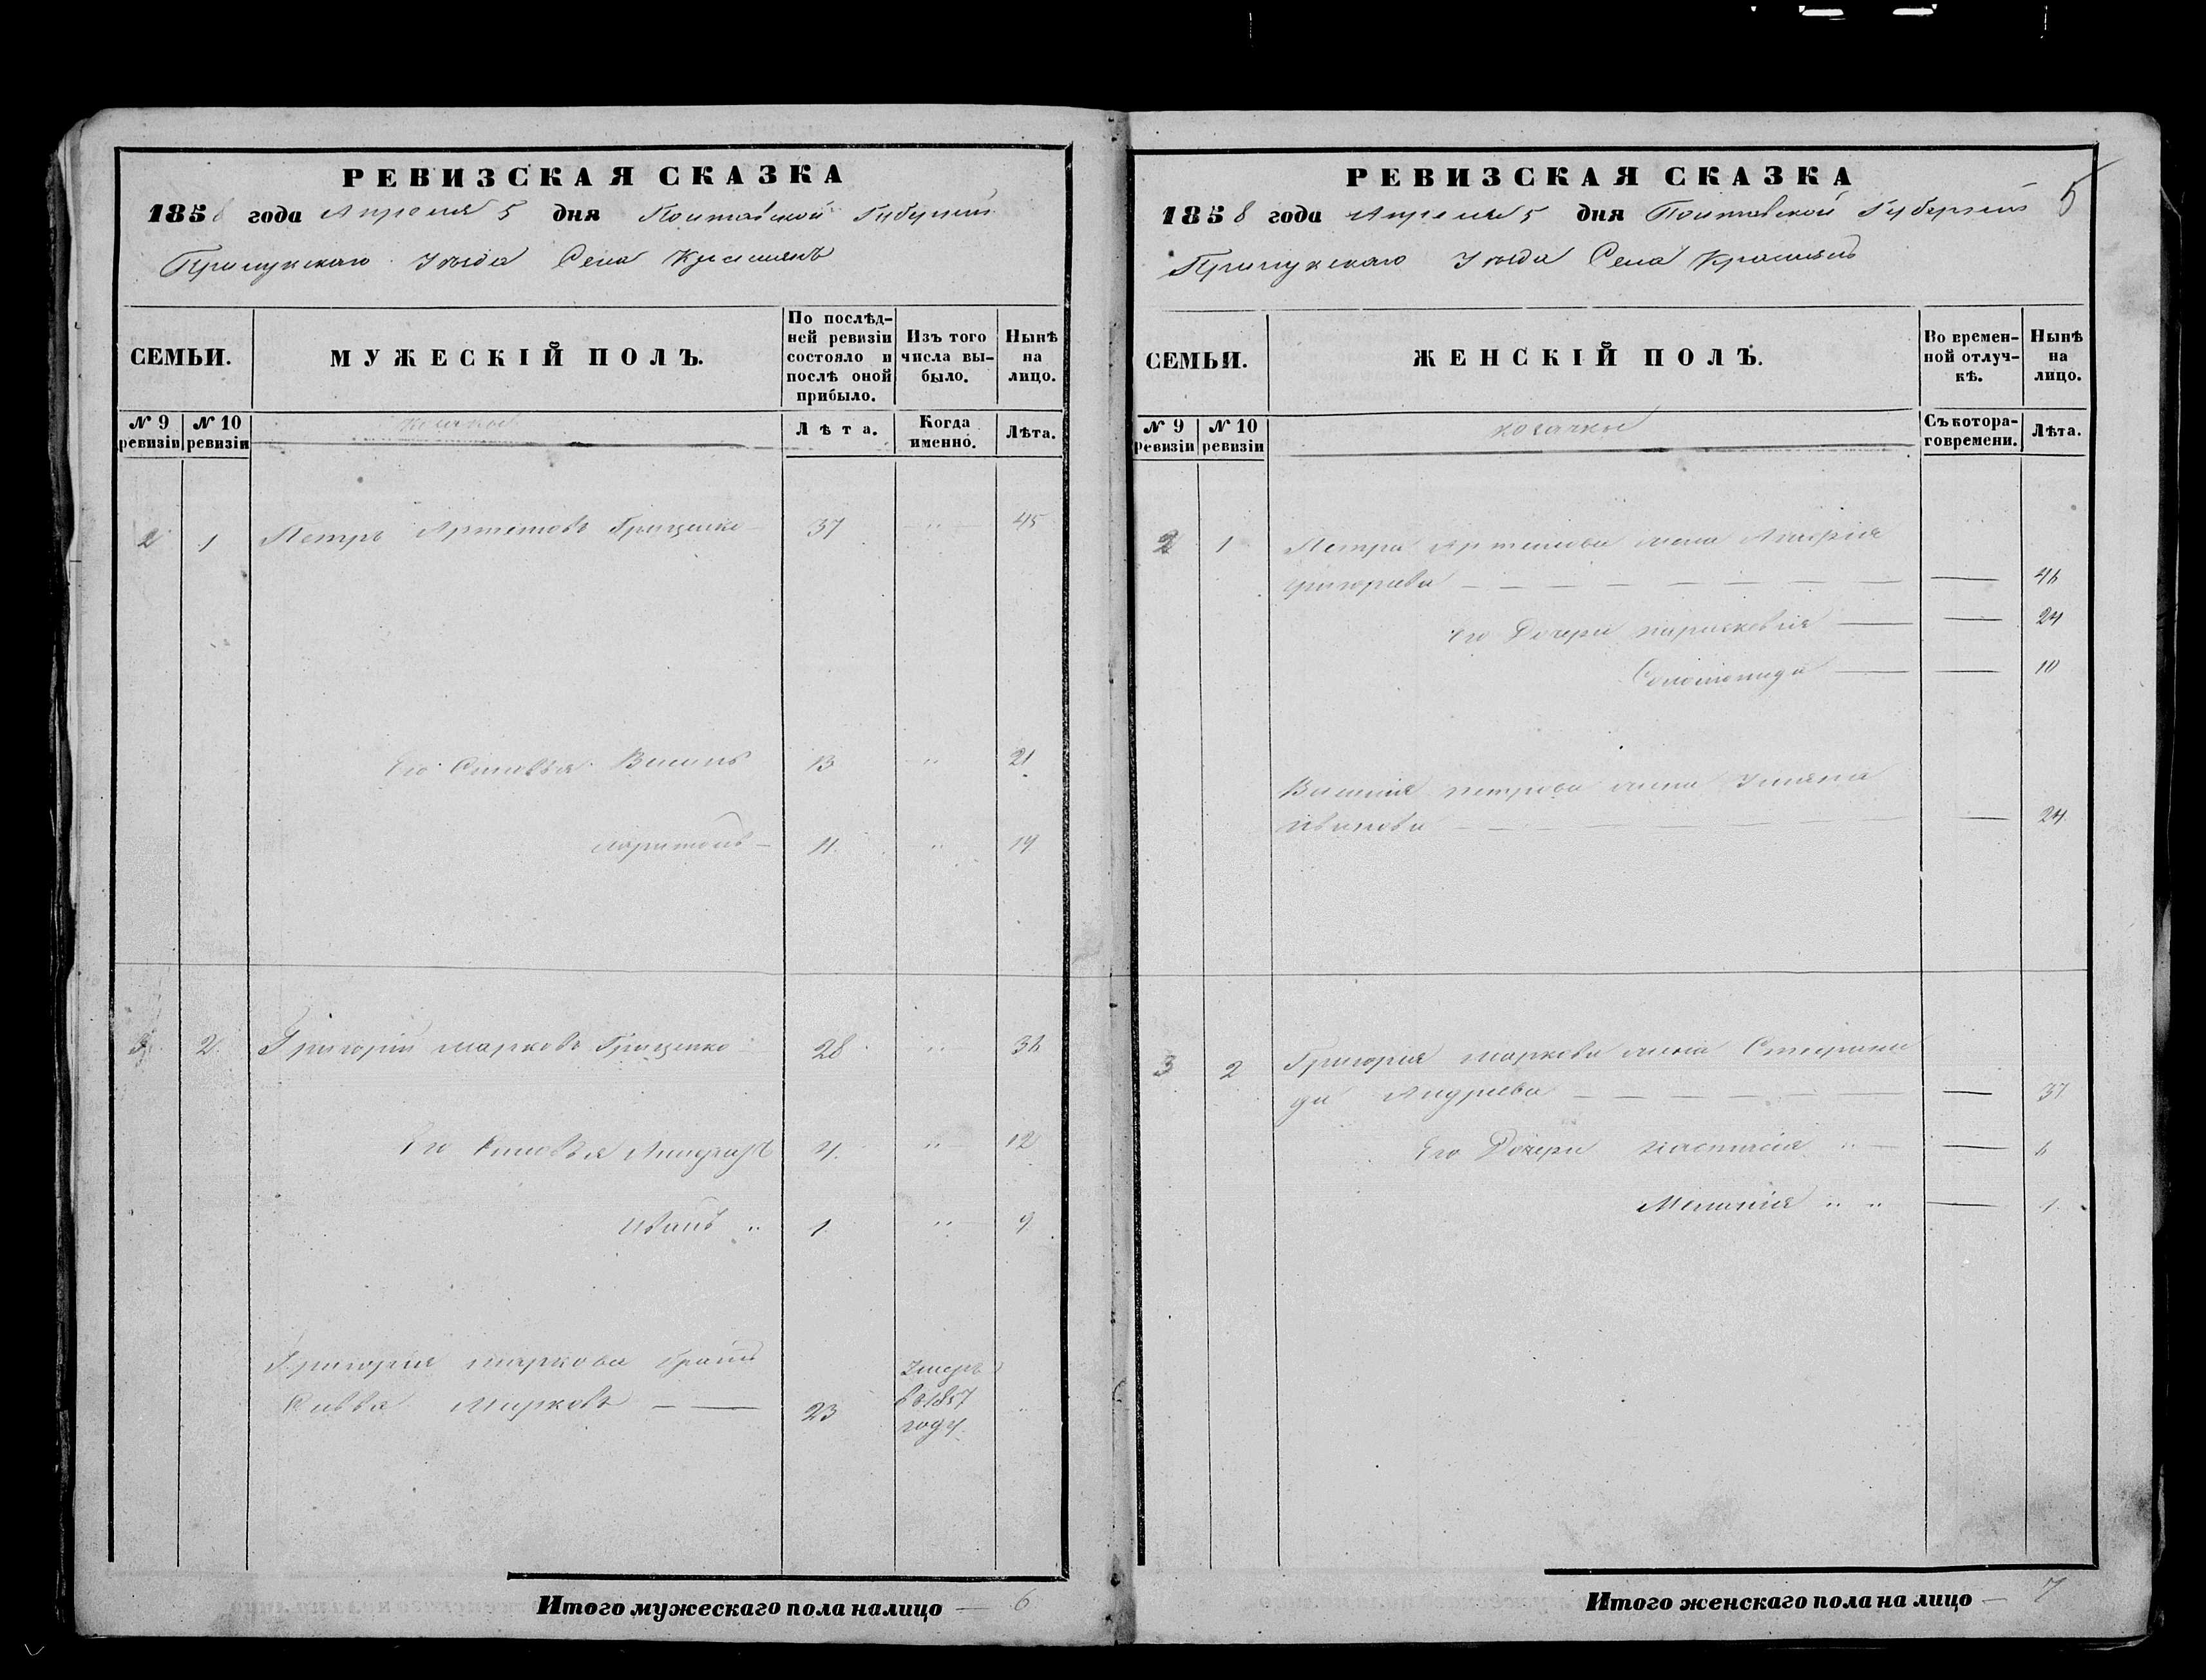 РЕВИЗСКАЯ СКАЗКА
1858 года Апреля 5 дня Полтавской Губерніи
Прилукскаго Уезда Села Красляно
СЕМЬИ.
МУЖЕСКІЙ ПОЛЪ.
По послѣд-
ней ревизіи
состояло и
послѣ оной
прибыло.
Изъ того
числа вы-
было.
Нынѣ
на
лицо.
№ 9
ревизіи
№ 10
ревизіи
козаки
Лѣта.
Когда
именно.
Лѣта.
2 1 Петръ Артемовъ Грищенко 37 " 45
Его Сыновья Василь 13 " 21
Харитонъ 11 " 19
3 2 Григорій Марковъ Грищенко 28 " 36
Его Сыновья 4 " 12
Иванъ " 1 " 9
Григорія Маркова братъ
Савва Марковъ 23 Умеръ
в 1857
году
Итого мужескаго пола налицо — 6
РЕВИЗСКАЯ СКАЗКА
5
1858 года Апреля 5 дня Полтавской Губерніи
Прилукскаго Уезда Села
СЕМЬИ.
ЖЕНСКІЙ ПОЛЪ.
Во времен-
ной отлуч-
кѣ.
Нынѣ
на
лицо.
№ 9
Ревизіи
№ 10
ревизіи
козачки
Съ котора-
го времени.
Лѣта.
2 1 Петра Артемова жена Агафія
Григорьева — 46
Его Дочери Параскевія — 24
Соломонида — 10
Василія Петрова жена Ульяна
Иванова — 24
3 2 Григорія Маркова жена Степани
да Андреева — 37
Его Дочери Настасія " — 6
Меланія " " — 1
Итого женскаго пола на лицо — 7